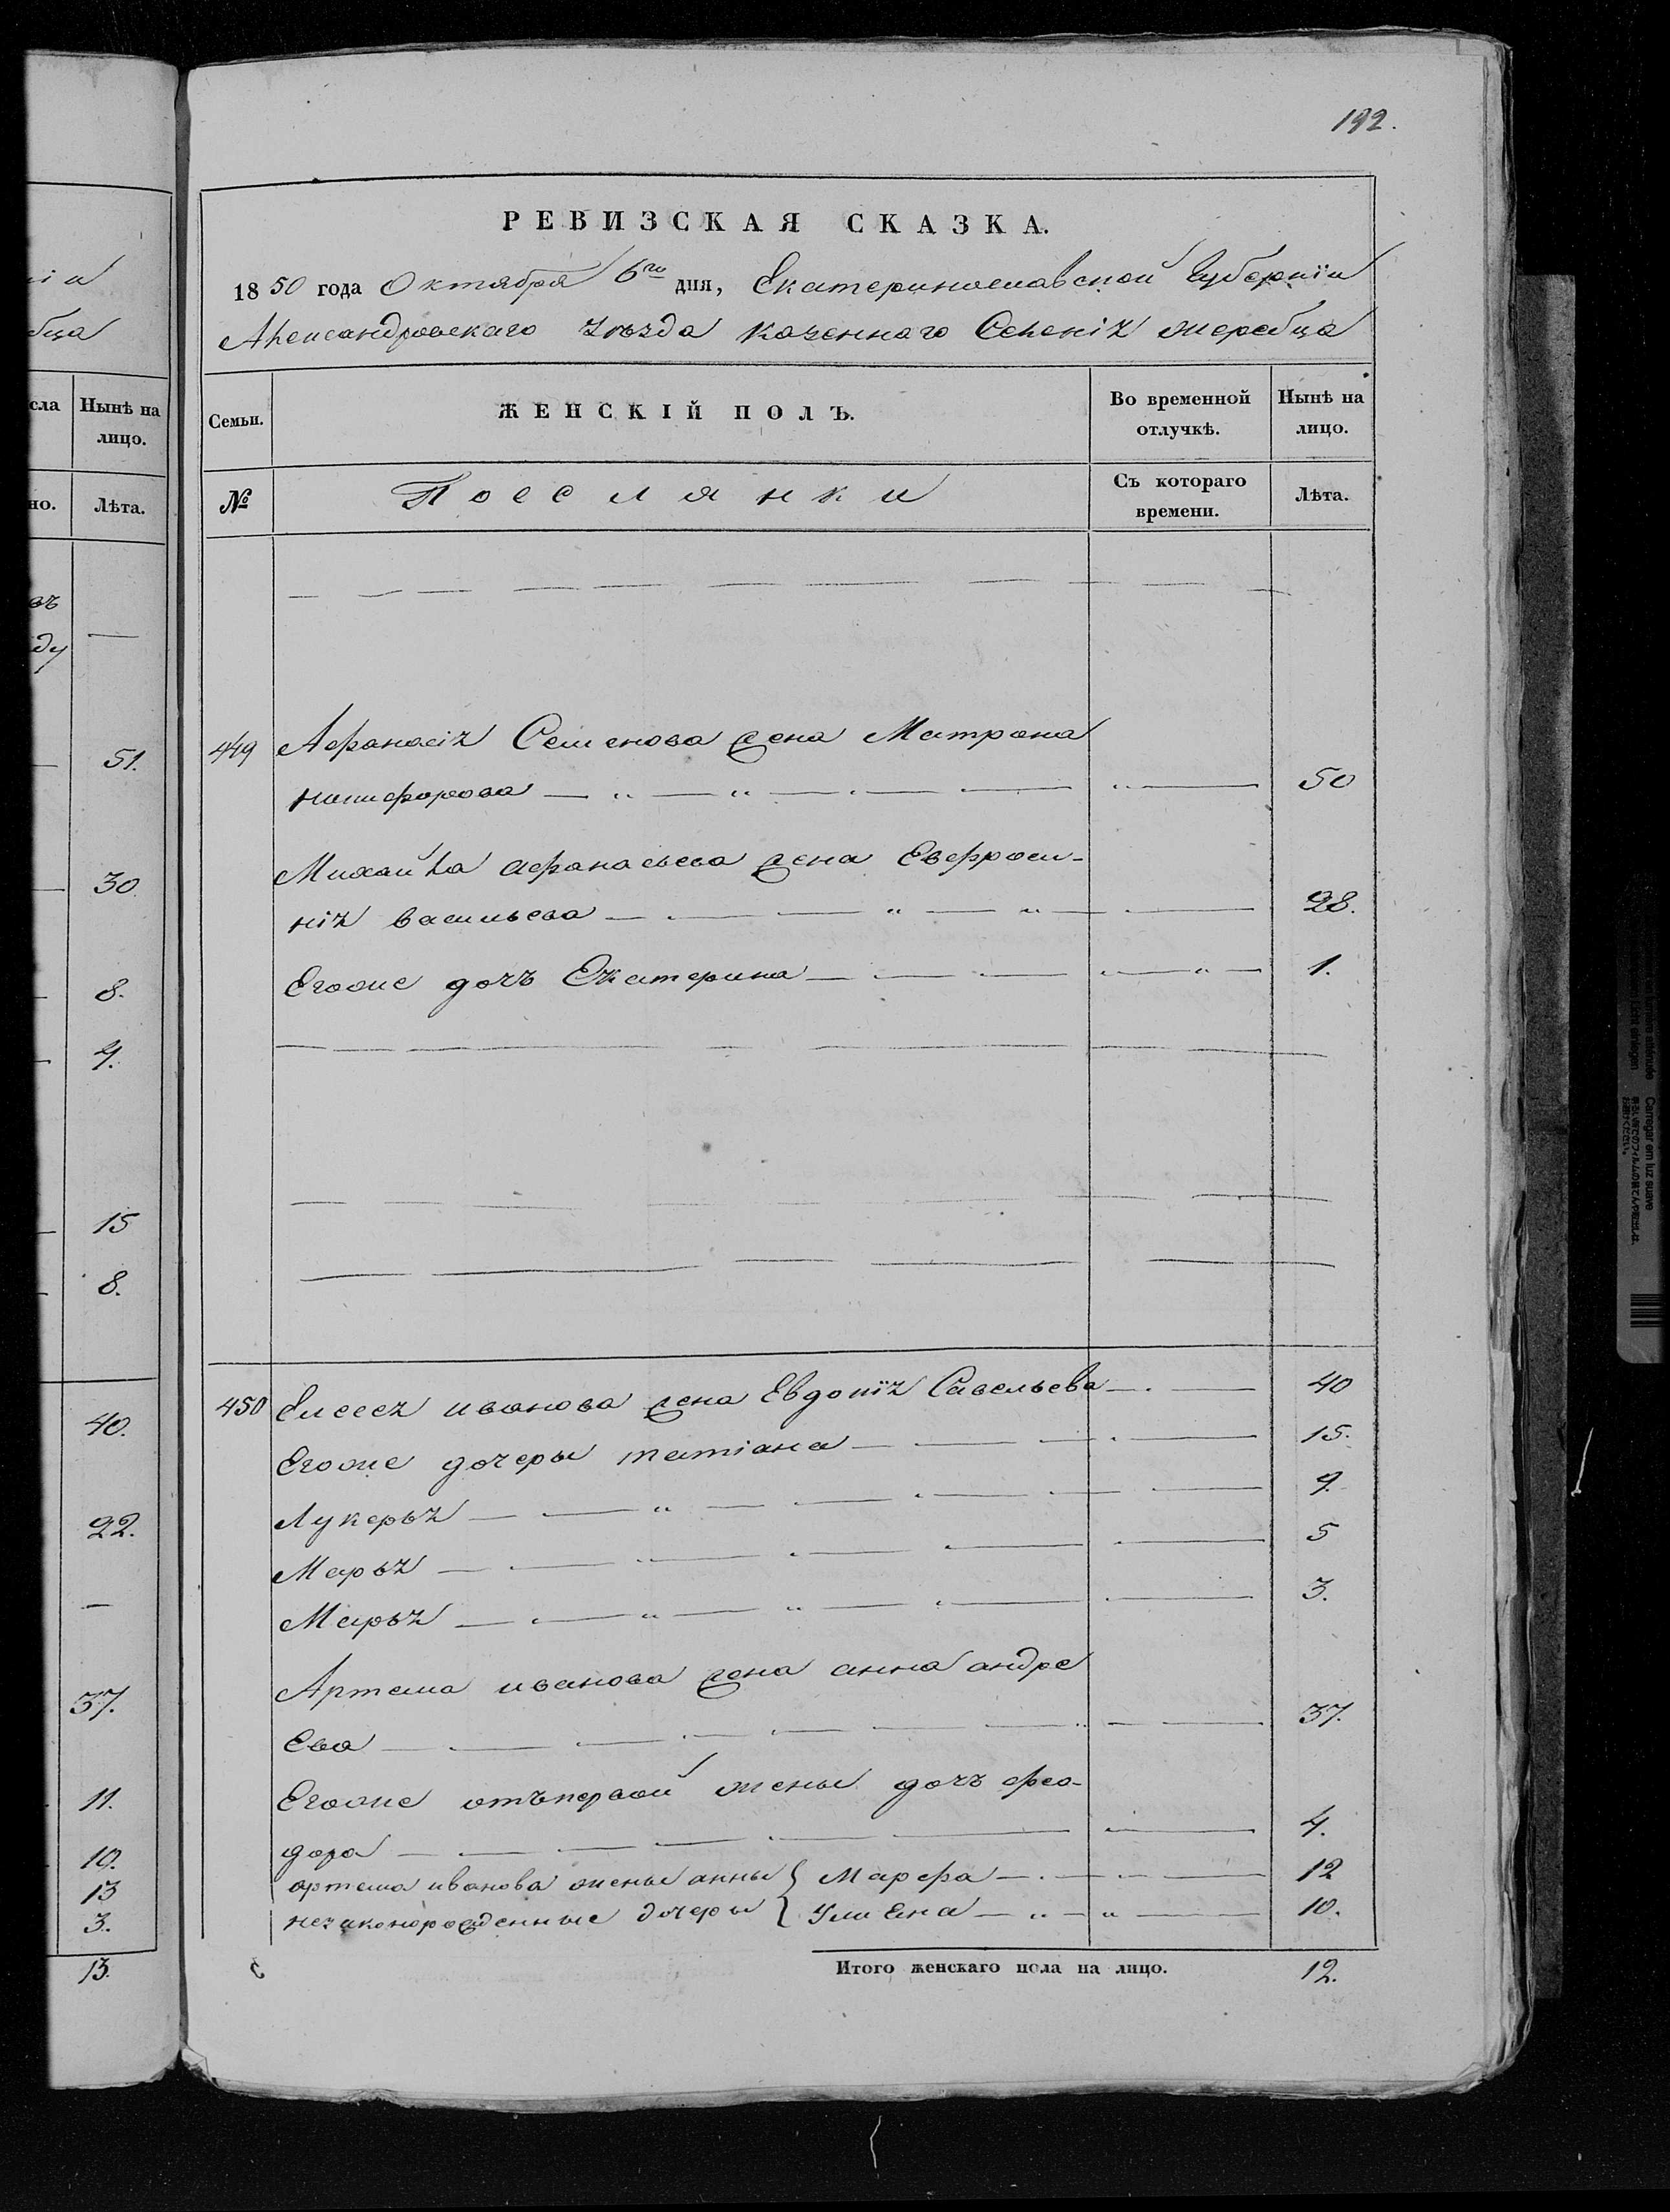 ніи
бца
сла Нынѣ на
лицо.
но. Лѣта.
въ
ду
51.
30.
8.
4.
15
8.
40.
22.
37.
11.
10.
13
3.
13.
192.
РЕВИЗСКАЯ СКАЗКА.
1850 года Октября 6го дня, Екатеринославской Губерніи
Александровскаго уѣзда казеннаго Селенія жеребца
Семьи. ЖЕНСКІЙ ПОЛЪ. Во временной отлучкѣ. Нынѣ на лицо.
№ Поселянки Съ котораго времени. Лѣта.
449 Афанасія Семенова жена Матрона
никифорова 50
Михайла афанасьева жена Евфроси-
нія васильева 28.
Егоже дочъ Екатерина 1.
450 Елисея иванова жена Евдокія Савельева 40
Егоже дочеры татіана 15.
Лукерья 9.
Марья 5
Марья 3.
Артема иванова жена анна андре
ева 37.
Егоже отъпервой жены дочъ фео-
дора 4.
артема иванова жены анны } Марфа 12
незаконорожденные дочеры } Улиена 10.
Итого женскаго пола на лицо. 12.